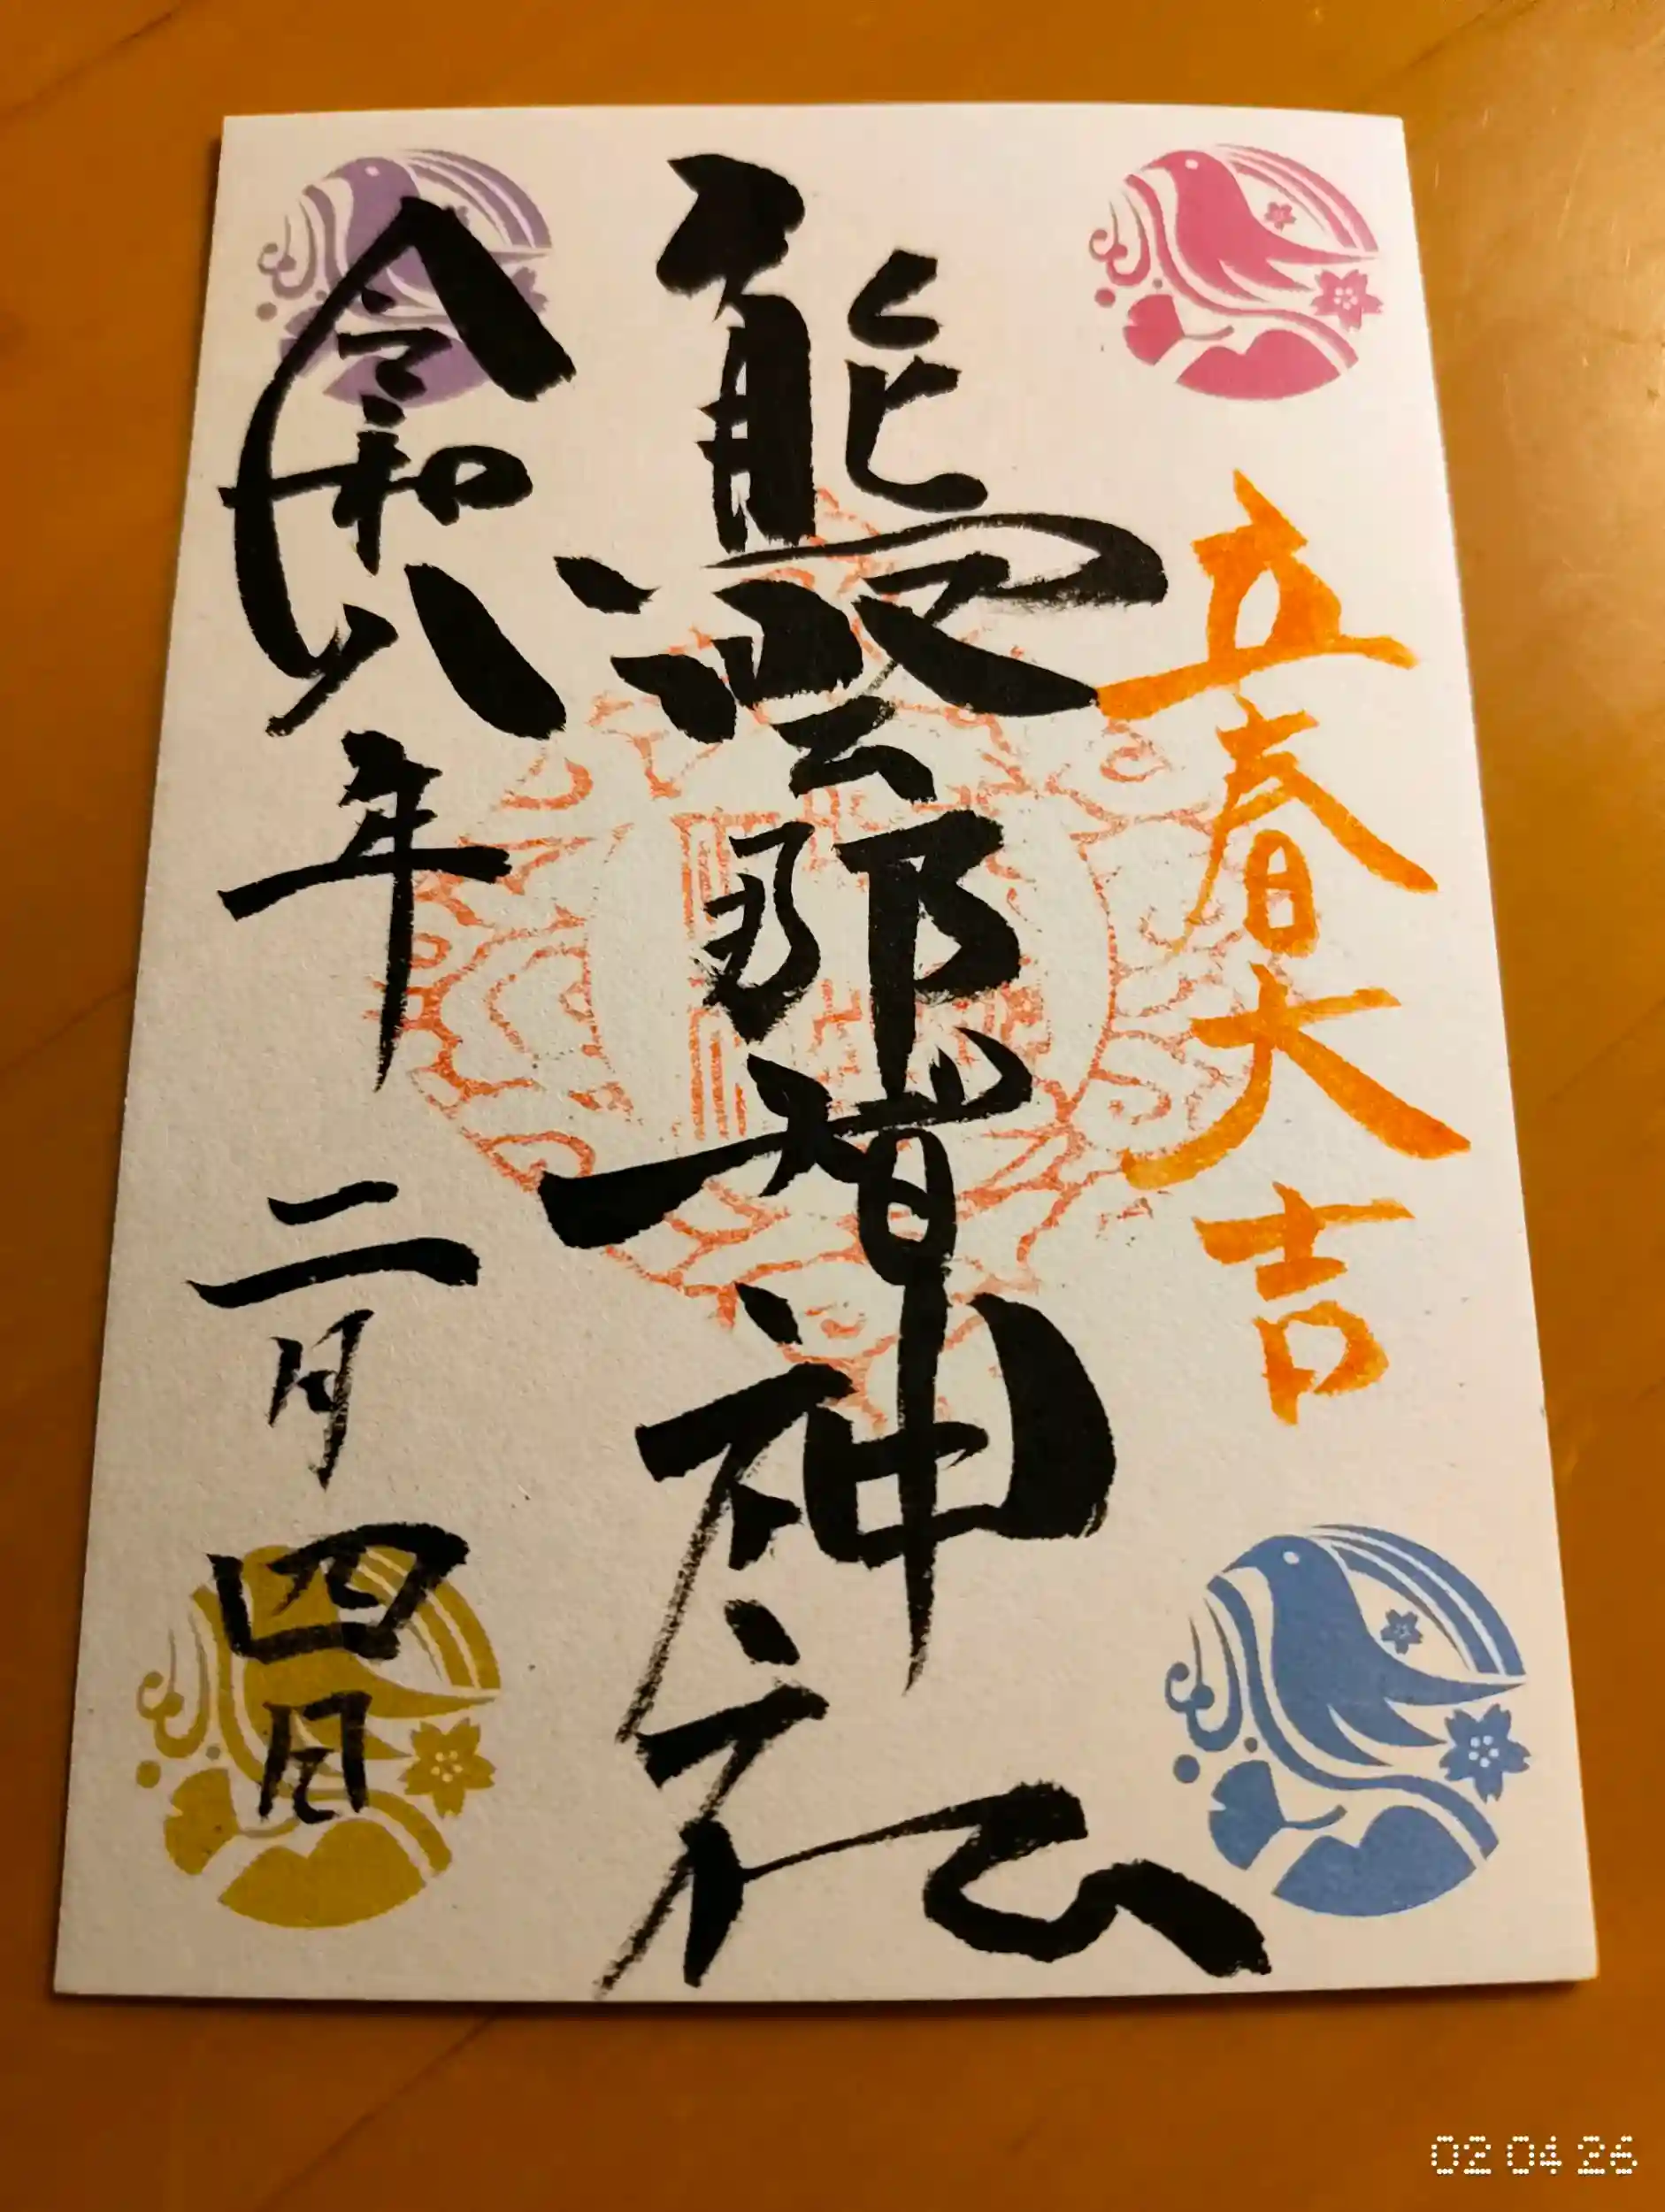 立春大吉
熊野那智神社
令和八年 二月四日
02 04 26